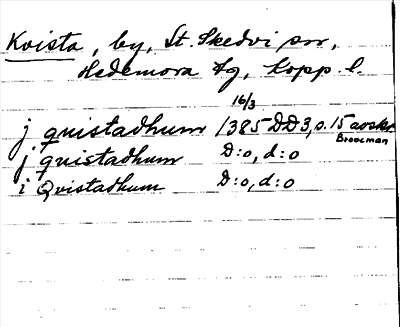 Kvista, by, St. Skedvi snr,
Hedemora tg, Kopp. l.
16/3
j quistadhum 1385 DD3, s. 15 avskr.
Broocman
j quistadhum D:o, d:o
i Qvistadhum D:o, d:o